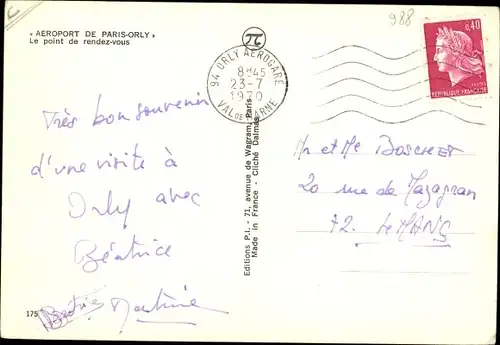 « AEROPORT DE PARIS-ORLY »
Le point de rendez-vous
988
94 ORLY AEROGARE
8H45
23-7
1970
VAL DE MARNE
0,40
REPUBLIQUE FRANÇAISE
Très bon souvenir
d'une visite à
Orly avec
Béatrice
Martine
Editions P.I. - 71, avenue de Wagram, Paris
Made in France - Cliché Dalmas
Mr et Me BOSCHET
20 rue de Mazagran
72. Le MANS
175